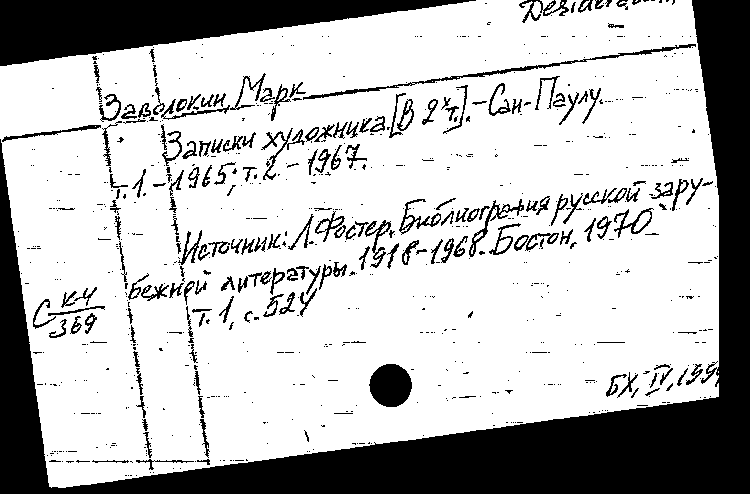 Заволокин, Марк
Записки художника. [В 2х т.]. - Сан-Паулу.
т.1. - 1965; т.2 - 1967.
Источник: Л. Фостер. Библиография русской зару-
бежной литературы. 1918-1968. Бостон, 1970
т. 1, с. 524
С К-4
369
БХ, IV, 199